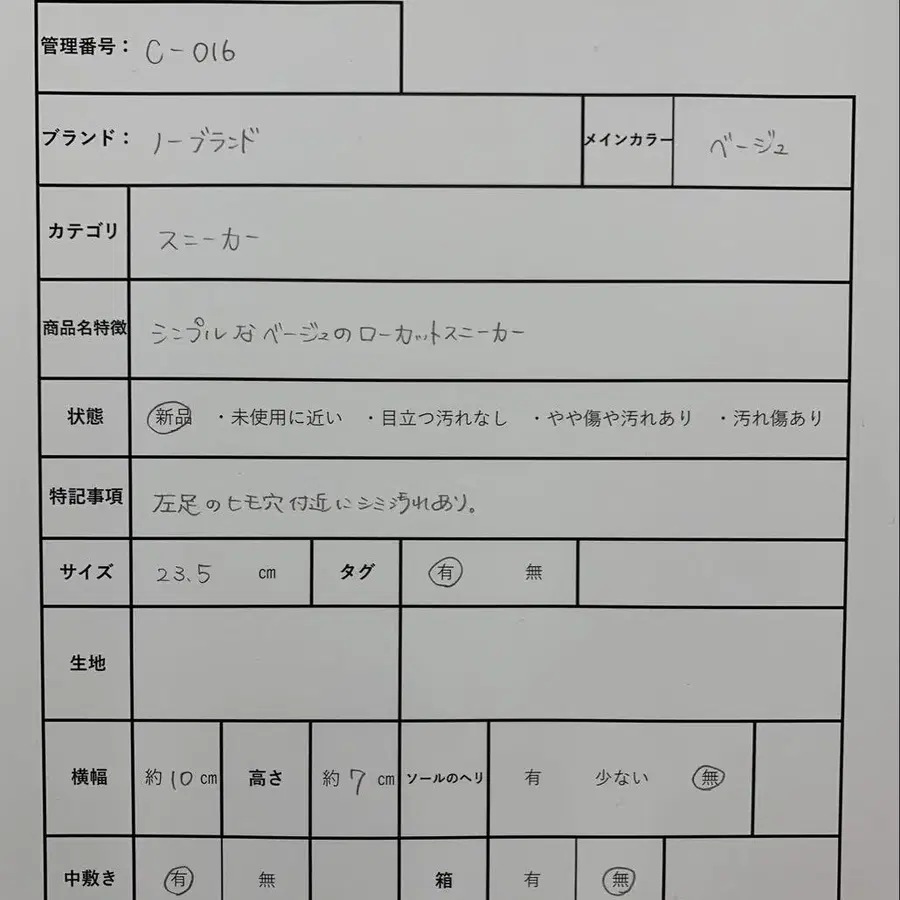 管理番号： C-016
ブランド： ノーブランド メインカラー ベージュ
カテゴリ スニーカー
商品名特徴 シンプルなベージュのローカットスニーカー
状態 新品 ・未使用に近い ・目立つ汚れなし ・やや傷や汚れあり ・汚れ傷あり
特記事項 左足のヒモ穴付近にシミ汚れあり。
サイズ 23.5 cm タグ 有 無
生地
横幅 約10cm 高さ 約7cm ソールのヘリ 有 少ない 無
中敷き 有 無 箱 有 無